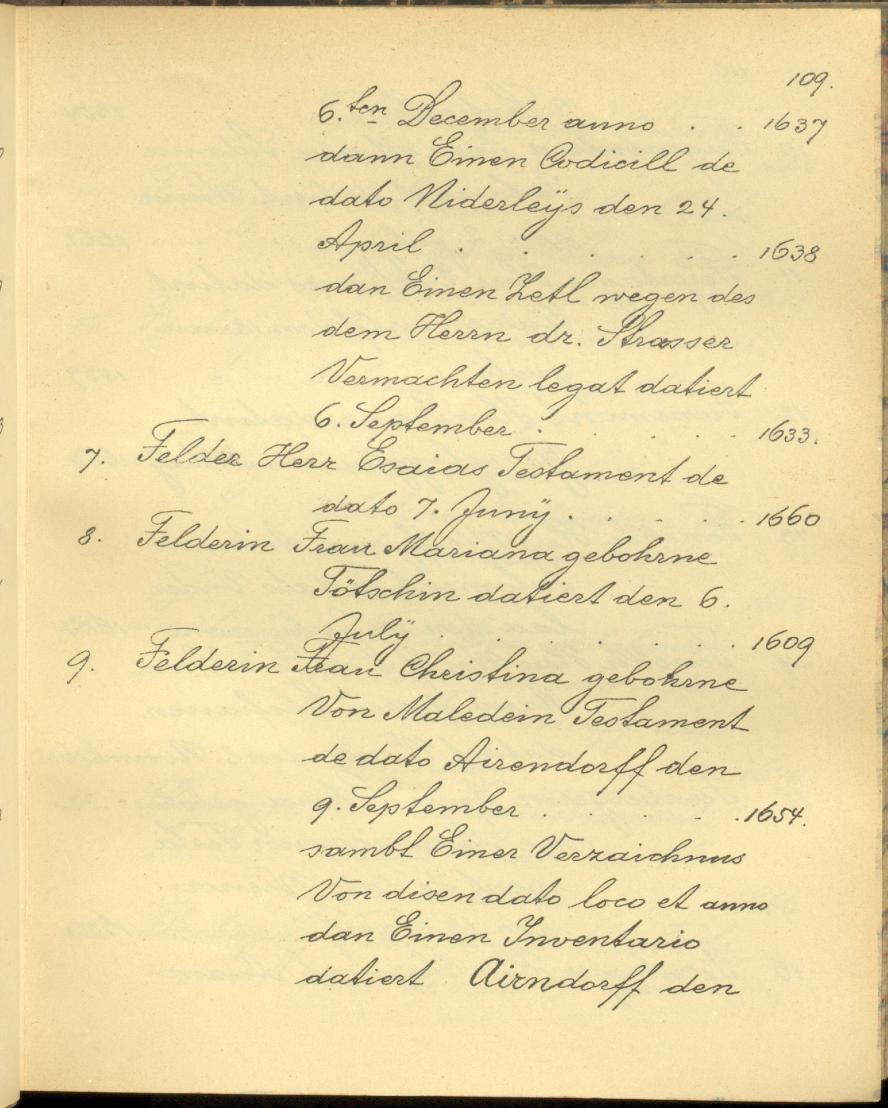 109.
6.ten December anno . . 1637
dann Einen Codicill de
dato Niderleÿs den 24.
April . . . . . . 1638
dan Einen Zetl wegen des
dem Herrn dr. Strasser
Vermachten legat datiert
6. September . . . . 1633.
7. Felder Herr Esaias Testament de
dato 7. Junÿ . . . . 1660
8. Felderin Frau Mariana gebohrne
Tötschin datiert den 6.
Julÿ . . . . . . 1609
9. Felderin Frau Christina gebohrne
Von Maledein Testament
de dato Airendorff den
9. September . . . . 1654.
sambt Einer Verzaichnus
Von disen dato loco et anno
dan Einen Inventario
datiert Airndorff den